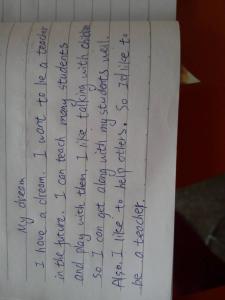 My dream
I have a dream. I want to be a teacher
in the future. I can teach many students
and play with them. I like talking with
so I can get along with my students well.
Also, I like to help others. So I'd like to
be a teacher.